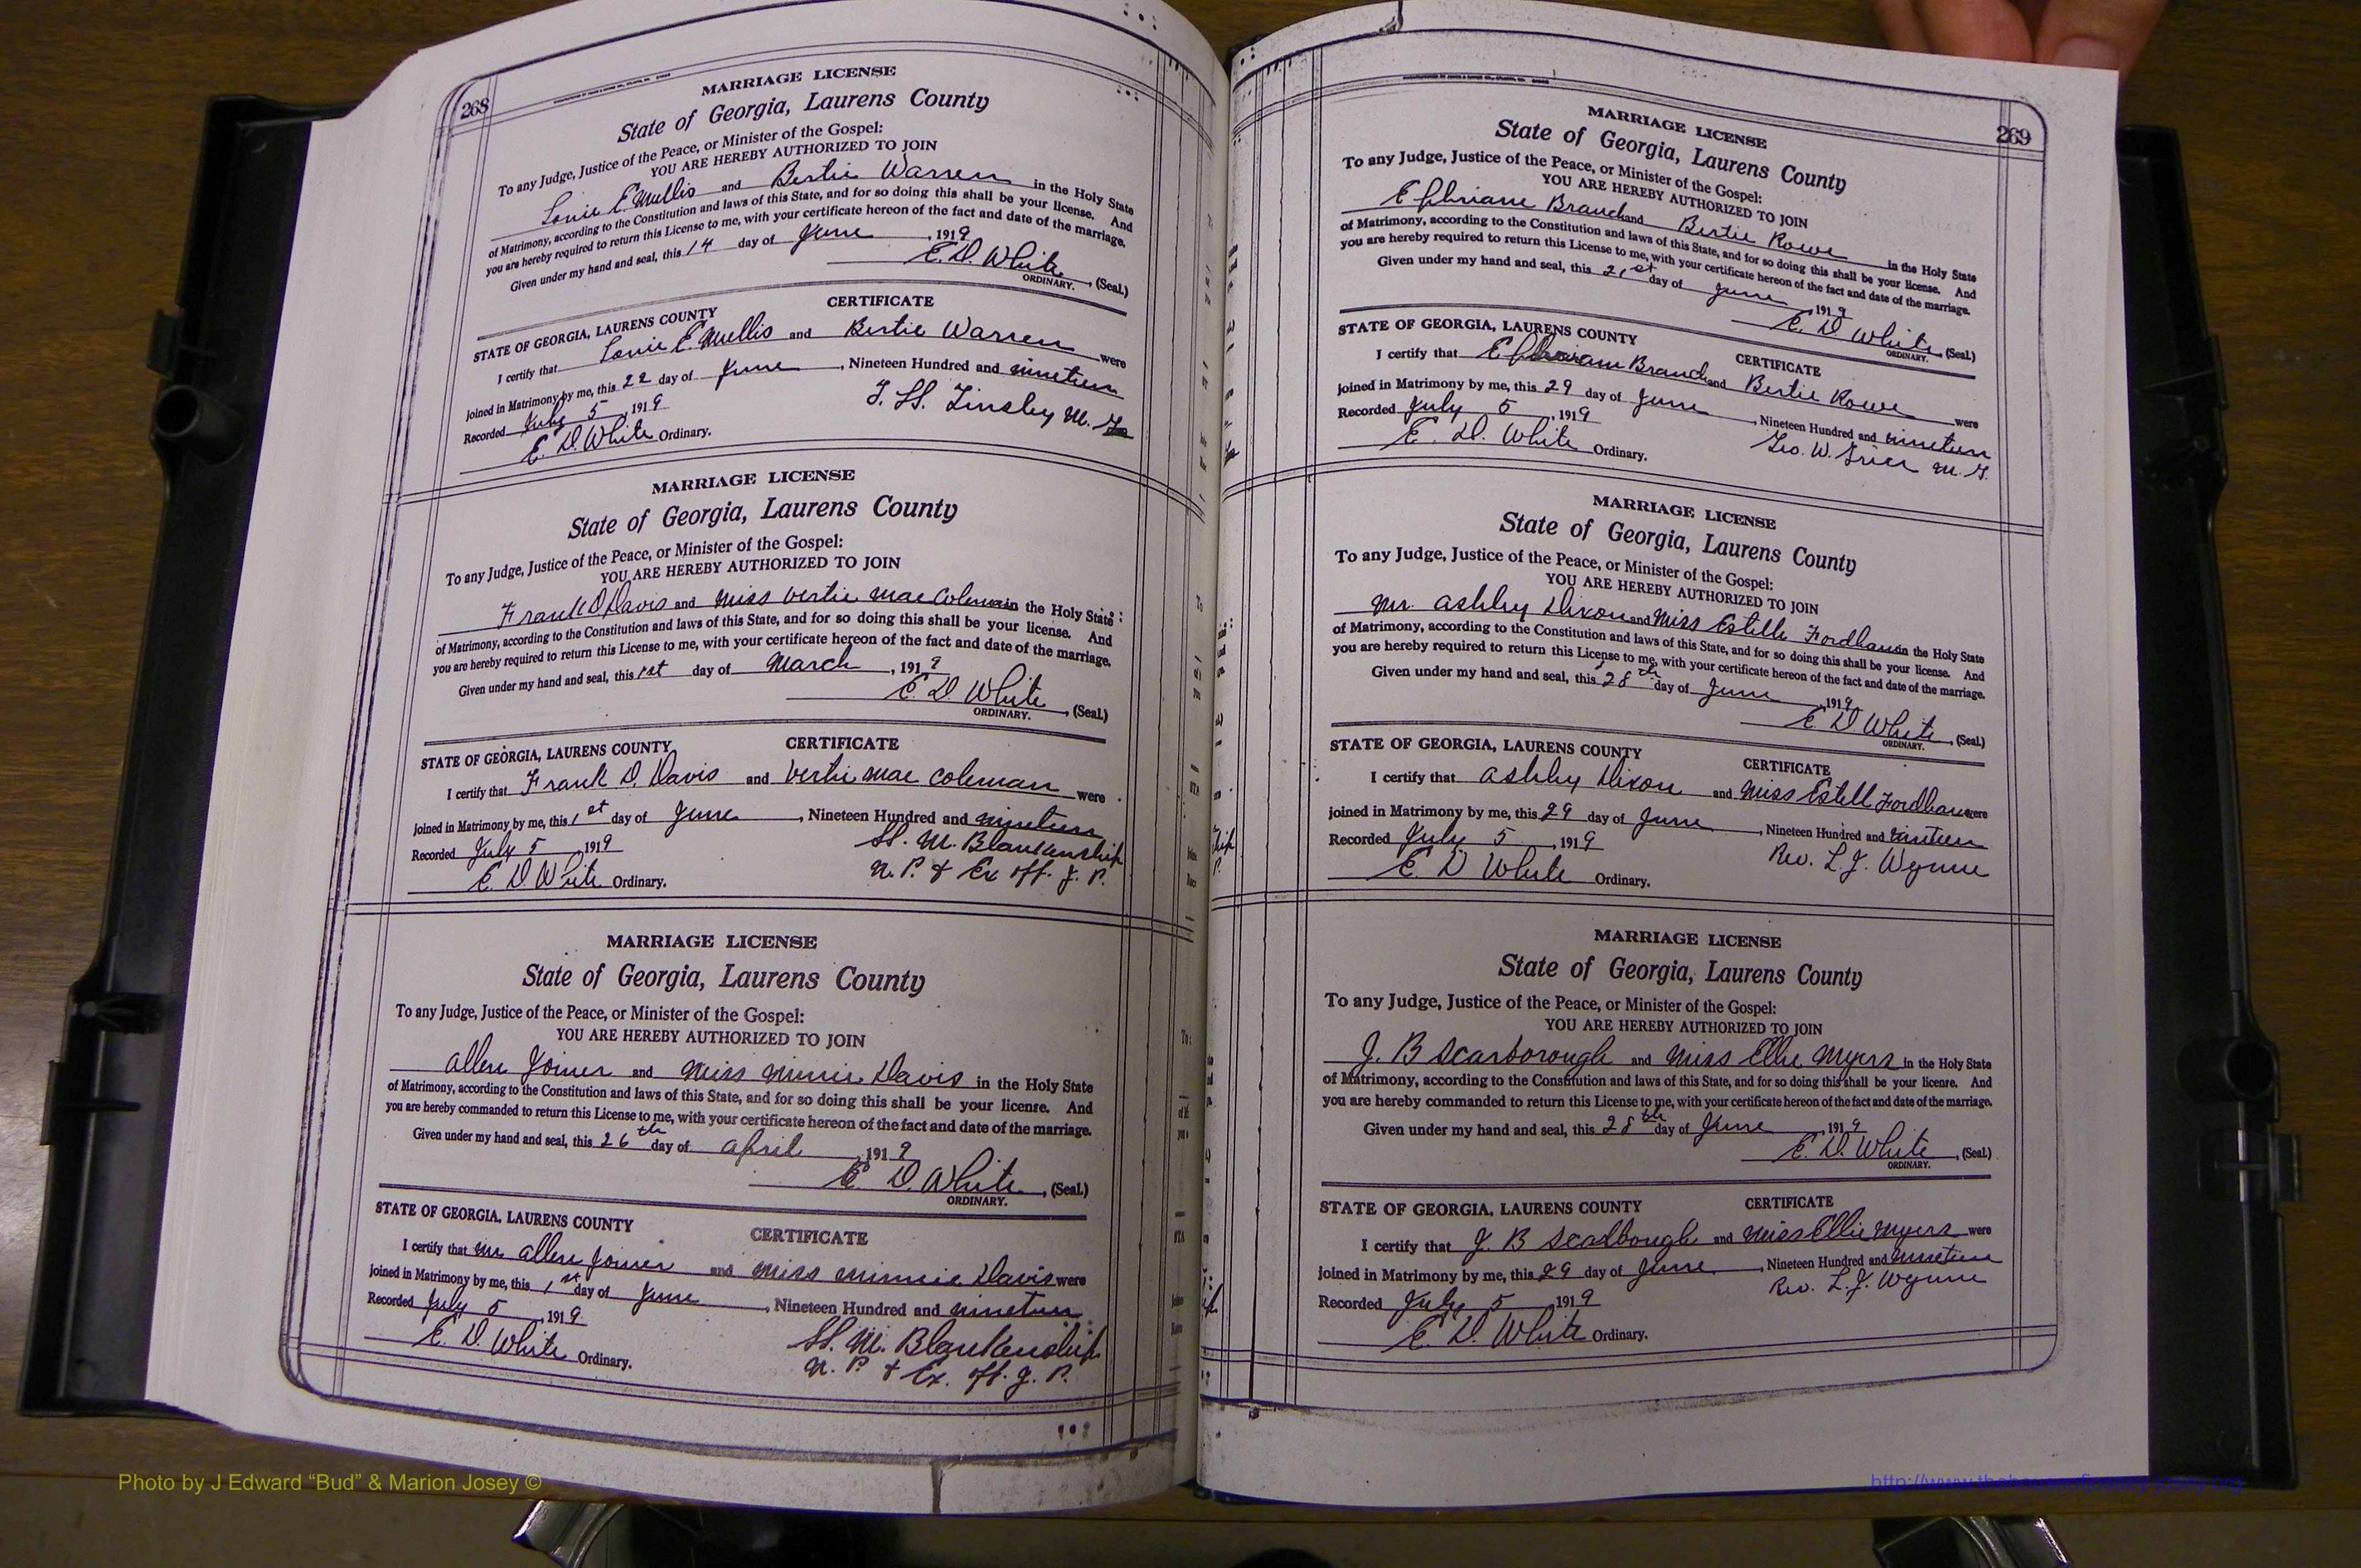 268
MARRIAGE LICENSE
State of Georgia, Laurens County
To any Judge, Justice of the Peace, or Minister of the Gospel:
YOU ARE HEREBY AUTHORIZED TO JOIN
Lonie E. Mullis and Bertie Warren in the Holy State
of Matrimony, according to the Constitution and laws of this State, and for so doing this shall be your license. And
you are hereby required to return this License to me, with your certificate hereon of the fact and date of the marriage.
Given under my hand and seal, this 14 day of June, 1919
E. D. White, (Seal.)
ORDINARY.
CERTIFICATE
STATE OF GEORGIA, LAURENS COUNTY
I certify that Lonie E. Mullis and Bertie Warren were
joined in Matrimony by me, this 22 day of June, Nineteen Hundred and nineteen
Recorded July 5, 1919
E. D. White Ordinary.
Tinsley M. G.
MARRIAGE LICENSE
State of Georgia, Laurens County
To any Judge, Justice of the Peace, or Minister of the Gospel:
YOU ARE HEREBY AUTHORIZED TO JOIN
Frank D Davis and Miss Vertie Mae Coleman in the Holy State
of Matrimony, according to the Constitution and laws of this State, and for so doing this shall be your license. And
you are hereby required to return this License to me, with your certificate hereon of the fact and date of the marriage.
Given under my hand and seal, this 1st day of March, 1919
E. D. White, (Seal.)
ORDINARY.
CERTIFICATE
STATE OF GEORGIA, LAURENS COUNTY
I certify that Frank D. Davis and Vertie Mae Coleman were
joined in Matrimony by me, this 1st day of June, Nineteen Hundred and nineteen
Recorded July 5, 1919
H. M. Blankenship
E. D. White Ordinary.
N. P. & Ex off. J. P.
MARRIAGE LICENSE
State of Georgia, Laurens County
To any Judge, Justice of the Peace, or Minister of the Gospel:
YOU ARE HEREBY AUTHORIZED TO JOIN
Allen Joiner and Miss Minnie Davis in the Holy State
of Matrimony, according to the Constitution and laws of this State, and for so doing this shall be your license. And
you are hereby commanded to return this License to me, with your certificate hereon of the fact and date of the marriage.
Given under my hand and seal, this 26th day of April, 1919
E. D. White, (Seal.)
ORDINARY.
STATE OF GEORGIA, LAURENS COUNTY
CERTIFICATE
I certify that Mr Allen Joiner and Miss Minnie Davis were
joined in Matrimony by me, this 1st day of June, Nineteen Hundred and nineteen
Recorded July 5, 1919
E. D. White Ordinary.
H. M. Blankenship
N. P. & Ex. off. J. P.
269
MARRIAGE LICENSE
State of Georgia, Laurens County
To any Judge, Justice of the Peace, or Minister of the Gospel:
YOU ARE HEREBY AUTHORIZED TO JOIN
Ephriam Branch and Bertie Rowe in the Holy State
of Matrimony, according to the Constitution and laws of this State, and for so doing this shall be your license. And
you are hereby required to return this License to me, with your certificate hereon of the fact and date of the marriage.
Given under my hand and seal, this 21st day of June 1919
E. D. White, (Seal.)
ORDINARY.
STATE OF GEORGIA, LAURENS COUNTY
CERTIFICATE
I certify that Ephraim Branch and Bertie Rowe were
joined in Matrimony by me, this 29 day of June, Nineteen Hundred and nineteen
Recorded July 5, 1919
Geo. W. M. G.
E. D. White Ordinary.
MARRIAGE LICENSE
State of Georgia, Laurens County
To any Judge, Justice of the Peace, or Minister of the Gospel:
YOU ARE HEREBY AUTHORIZED TO JOIN
Mr. Ashley Dixon and Miss Estelle Fordham in the Holy State
of Matrimony, according to the Constitution and laws of this State, and for so doing this shall be your license. And
you are hereby required to return this License to me, with your certificate hereon of the fact and date of the marriage.
Given under my hand and seal, this 28th day of June, 1919
E. D. White, (Seal.)
ORDINARY.
STATE OF GEORGIA, LAURENS COUNTY
CERTIFICATE
I certify that Ashley Dixon and Miss Estell Fordham were
joined in Matrimony by me, this 29 day of June, Nineteen Hundred and nineteen
Recorded July 5, 1919
Rev. L. J. Wynne
E. D. White Ordinary.
MARRIAGE LICENSE
State of Georgia, Laurens County
To any Judge, Justice of the Peace, or Minister of the Gospel:
YOU ARE HEREBY AUTHORIZED TO JOIN
J. B Scarborough and Miss Ellie Myers in the Holy State
of Matrimony, according to the Constitution and laws of this State, and for so doing this shall be your license. And
you are hereby commanded to return this License to me, with your certificate hereon of the fact and date of the marriage.
Given under my hand and seal, this 28th day of June, 1919
E. D. White, (Seal.)
ORDINARY.
STATE OF GEORGIA, LAURENS COUNTY
CERTIFICATE
I certify that J. B Scalbough and Miss Ellie Myers were
joined in Matrimony by me, this 29 day of June, Nineteen Hundred and nineteen
Rev. L. J. Wynne
Recorded July 5, 1919
E. D. White Ordinary.
Photo by J Edward “Bud” & Marion Josey ©